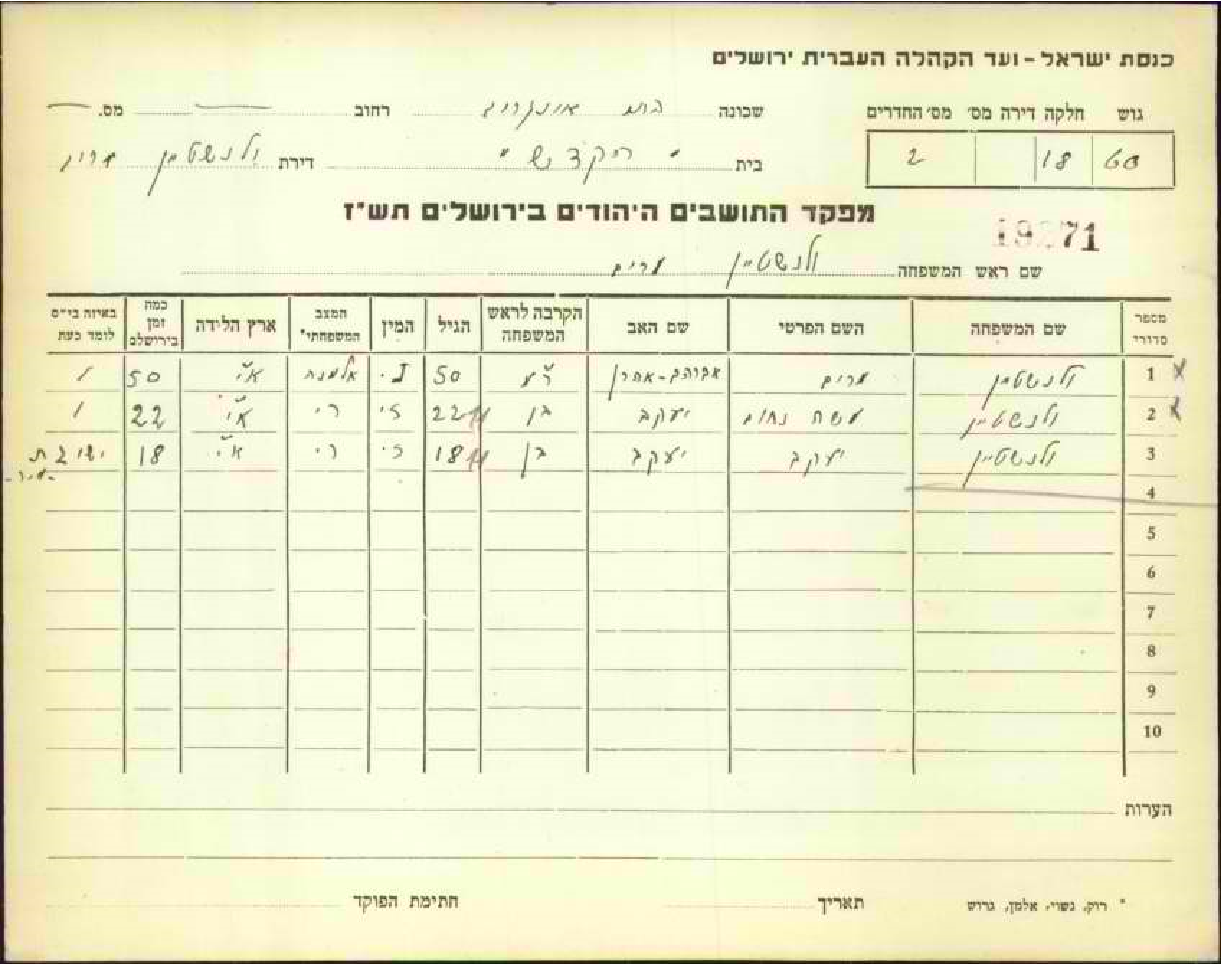 כנסת ישראל - ועד הקהלה העברית ירושלים
גוש חלקה דירה מס' מס' החדרים
60 18 2
שכונה בתי אונגרין רחוב מס.
בית "הקדש" דירת ולנשטיין מרים
מפקד התושבים היהודים בירושלים תש"ז
19271
שם ראש המשפחה ולנשטיין מרים
מספר סדורי שם המשפחה השם הפרטי שם האב הקרבה לראש המשפחה הגיל המין המצב המשפחתי* ארץ הלידה כמה זמן בירושלם באיזה בי"ס לומד כעת
1 ולנשטיין מרים אברהם-אהרן 50 נ. אלמנה א"י 50 /
2 ולנשטיין משה נחום יעקב בן 22 ז. ר' א"י 22 /
3 ולנשטיין יעקב יעקב בן 18 ז. ר' א"י 18 ישיבת
4
5
6
7
8
9
10
הערות
* רוק, נשוי, אלמן, גרוש תאריך חתימת הפוקד